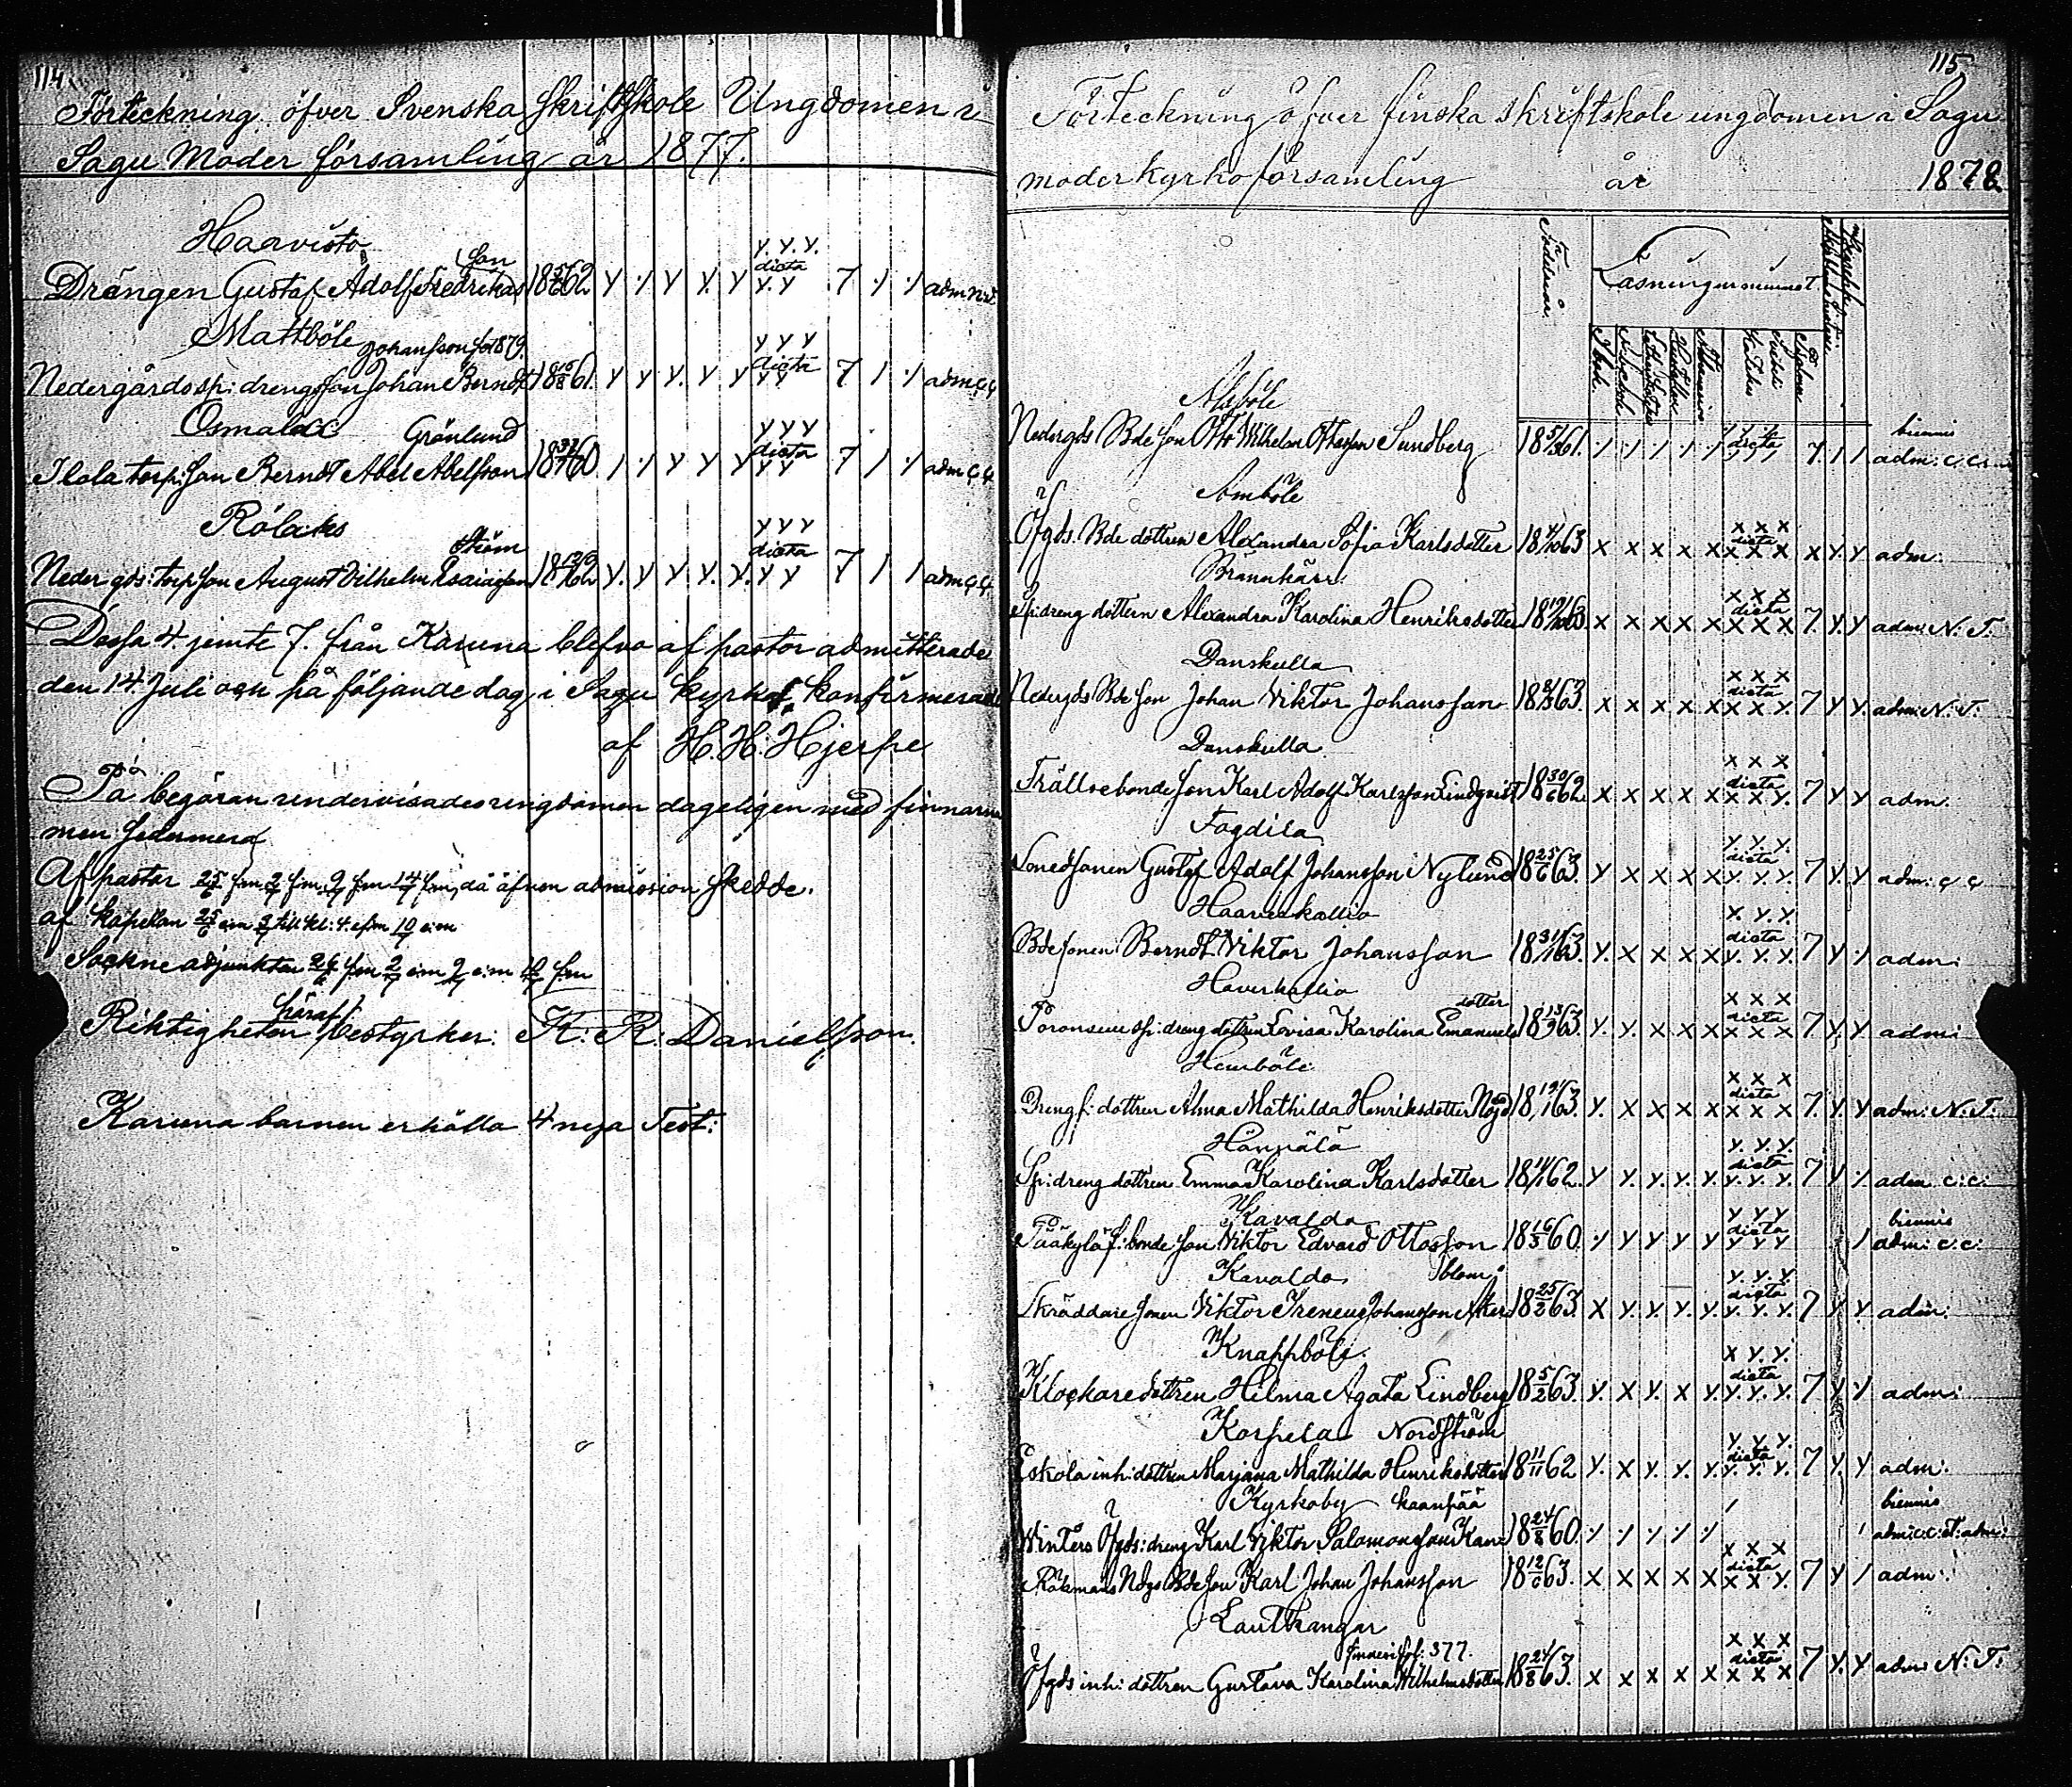 114
Förteckning öfver Svenska Skriftskole Ungdomen i
Sagu Moder församling år 1877.
Haavisto
son
Drängen Gustaf Adolf Fredrikas 18 62 y ·/ y y. y y. y. y. dicta y. y 7 ·/ ·/
Mattböle Johansson fol 879.
Nedergårds sp: drengs son Johan Berndt 18 61. y y y. y y y y y dicta y y 7 / ·/ adm c c
Osmalax Grönlund
Ilola torp: son Berndt Abel Abelsson 18 60 / ·/ y y y y y y dicta y y 7 / ·/ adm c c
Rölaks
Ström
Neder gds: torp son August Vilhelm Esaiasson 18 62 y. y y y. y. y y y dicta y y 7 / / adm c c
Dessa 4. jemte 7. från Karuna blefvo af pastor admitterade
den 14 Juli och på följande dag i Sagu kyrka konfirmerade
af H. H. Hjerpe
På begäran undervisades ungdomen dageligen med finnarne
men sedermera
Af pastor 25/6 fm 2/7 fm. 9/7 fm 14/7 fm, då äfven admission skedde.
af kapellan 25/6 em 3/7 till kl: 4. efm 10/7 e:m
Sockne adjunkten 26/6 fm 2/7 e:m 9/7 e:m 10/7 fm
häraf
Riktigheten bestyrker: K: R: Danielsson.
Karuna barnen erhålla 4 nya Test:
115
Förteckning öfver finska skriftskole ungdomen i Sagu
moderkyrkoförsamling år 1878.
Födelseår.
Läsningen
Abc bok.
Katekes
Alsböle
Nedergds Bde son Otto Wilhelm Ottosson Sundberg 18 61. ·/ / / / / dicta 7 / / biennis adm: c. c.
Åmböle
Öfgds. Bde dottren Alexandra Sofia Karlsdotter 18 63 x x x x x x x x dicta x x x x y. y adm:
Brännkärr
Sp: dreng dottern Alexandra Karolina Henriksdotter 18 63. x x x x x x x x dicta x x x 7. y. y adm: N: T.
Danskulla
Nedergds Bde son Johan Viktor Johansson 18 63. x x x x x x x x dicta x x y. 7 y y. adm: N: T.
Danskulla
Trälls bonde son Karl Adolf Karlsson Lindqvist 18 30/6 62 x x x x x x x x dicta x x y. 7 y y adm.
Fagdila
Gustaf Adolf Johansson Nylund 18 25/6 63. y x x x x y. y. y. dicta y. y. y. 7 y. y. adm: c c
Haaverkallio
Bde sonen Berndt Viktor Johansson 18 63. y. x x x x x. y. y. dicta y. y. y. 7 y ·/ adm:
Haverkallio
dotter
sp: dreng dottren Lovisa Karolina Emanuels 18 63. y. y. x x x x x x dicta x x x 7. y. y adm:
Hemböle
Dreng f: dottren Alma Mathilda Henriksdotter Nöjd 18 19/1 63. y. x x x x x x x dicta x x x 7. y. y adm: N: T.
Hännälä
Sp: dreng dottren Emma Karolina Karlsdotter 18 62. y y. y. y. y. y. y. y. dicta y. y. y. 7 y ·/ adm c: c:
Kavaldo
Pääkylä f: bonde son Viktor Edvard Ottosson 18 16/3 60. ·/ y y y y y y y dicta y y y / biennis adm: c. c:
Kavaldo blom
Skräddare sonen Viktor Ireneus Johansson Åker 18 25/2 63. x y. y. y. y. y. y. y dicta y. y. y. 7 y y. adm:
Knappböle.
Klockare dottren Hilma Agata Lindberg 18 5/2 63. y. x y. x y. x y. y. dicta y. y. y. 7 y. y adm:
Korpela Nordström
Eskola inh: dottren Marjana Mathilda Henriksdotter 18 11/11 62 y. x y. y. y. y. y. y. dicta y. y. y. 7 y. y adm:
Kyrkoby kaanpää
Winters Öfgds: dreng Karl Viktor Salomonsson Kan 18 24/8 60. ·/ ·/ ·/ ·/ ·/ / / biennis
Råkmans Ndgs Bde son Karl Johan Johansson 18 12/6 63. x x x x x x x x dicta x x y. 7 y / adm:
Lautkangar
fol: 377.
Öfgds inh: dottren Gustava Karolina Wilhelmsdotter 18 24/8 63. x x x x x x x x dicta x x x 7 y. y adm: N: T: